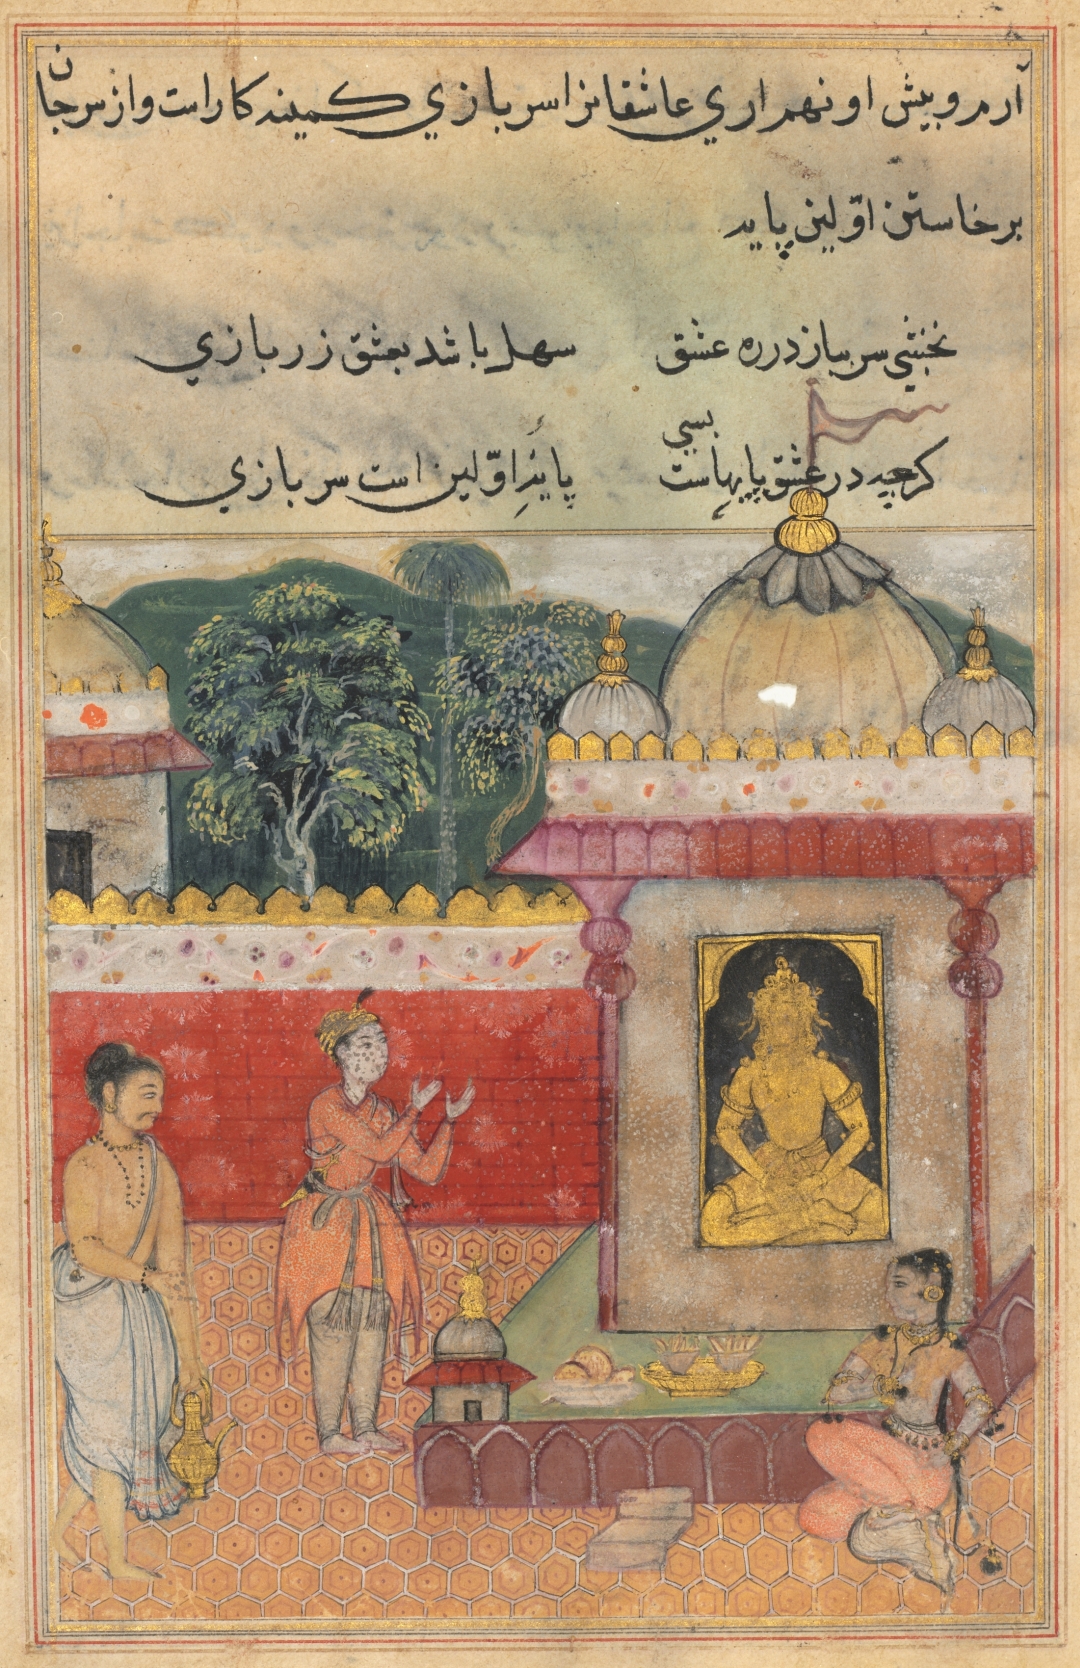 آرم و پیش او نهم اری عاشقانرا سربازي کمینه کاراست و از سر جان
بر خاستن اوّلین پایه
نخشبي سر بباز در ره عشق سهل باشد بعشق زر بازي
کرچه در عشق پایهاست بسي پایهٔ اوّلین است سر بازي